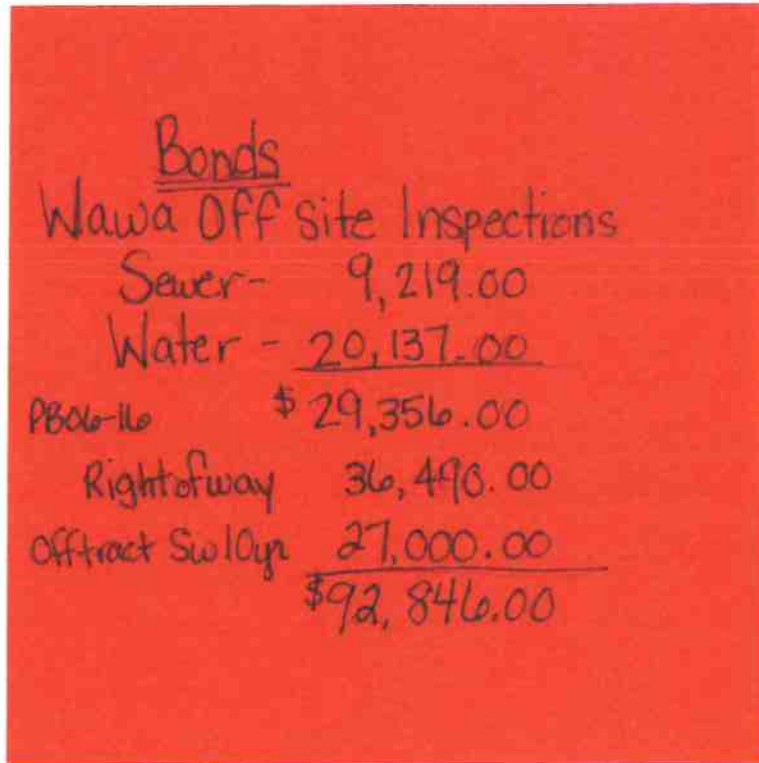 Bonds
Wawa Off Site Inspections
Sewer- 9,219.00
Water - 20,137.00
PB06-16 $ 29,356.00
Right of way 36,490.00
Offtract Sw 10yr 27,000.00
$92,846.00